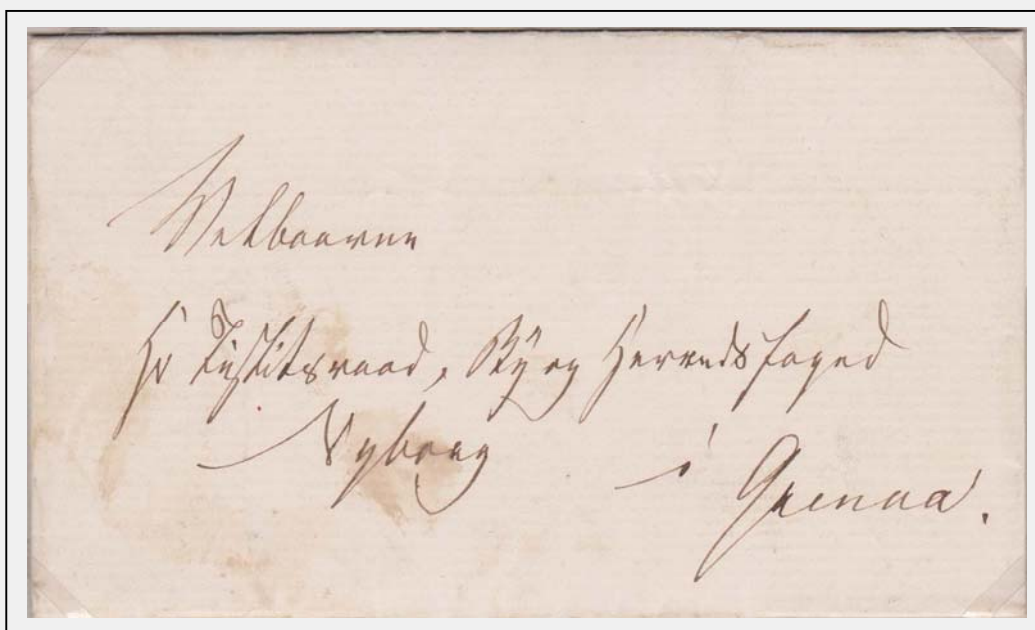 Velbaarne
Hr Justitsraad, By og Herredsfoged
Nyborg i Grenaa.